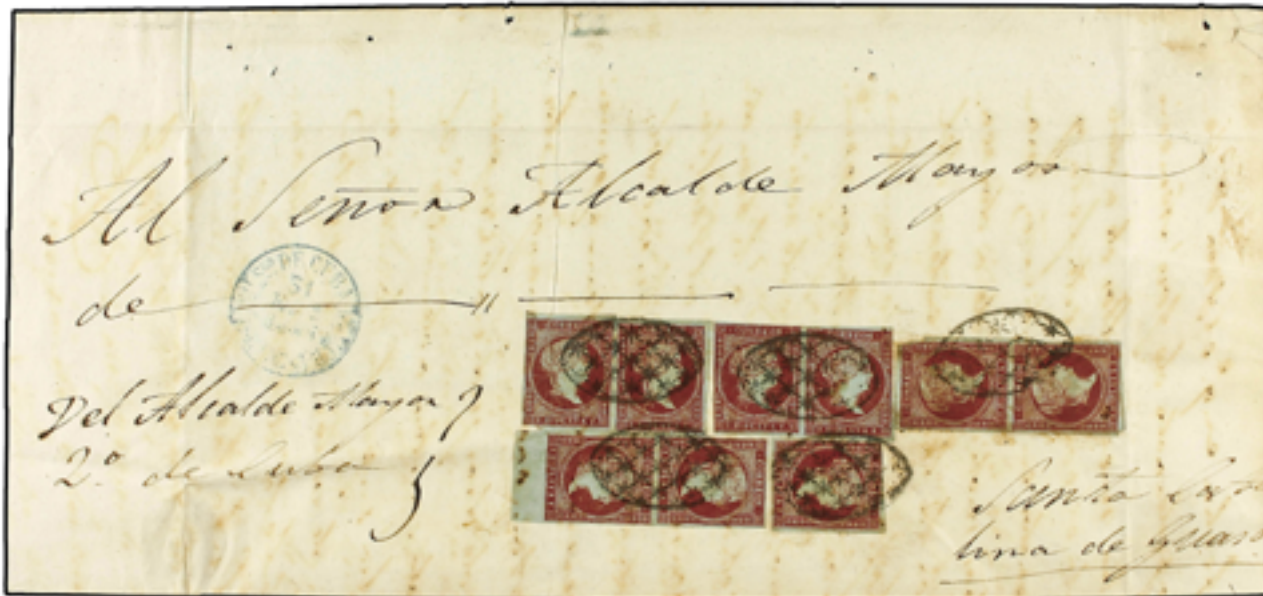 Al Señor Alcalde Mayor
de
Del Alcalde Mayor
2º de Cuba
Santa Cata
lina de Guan